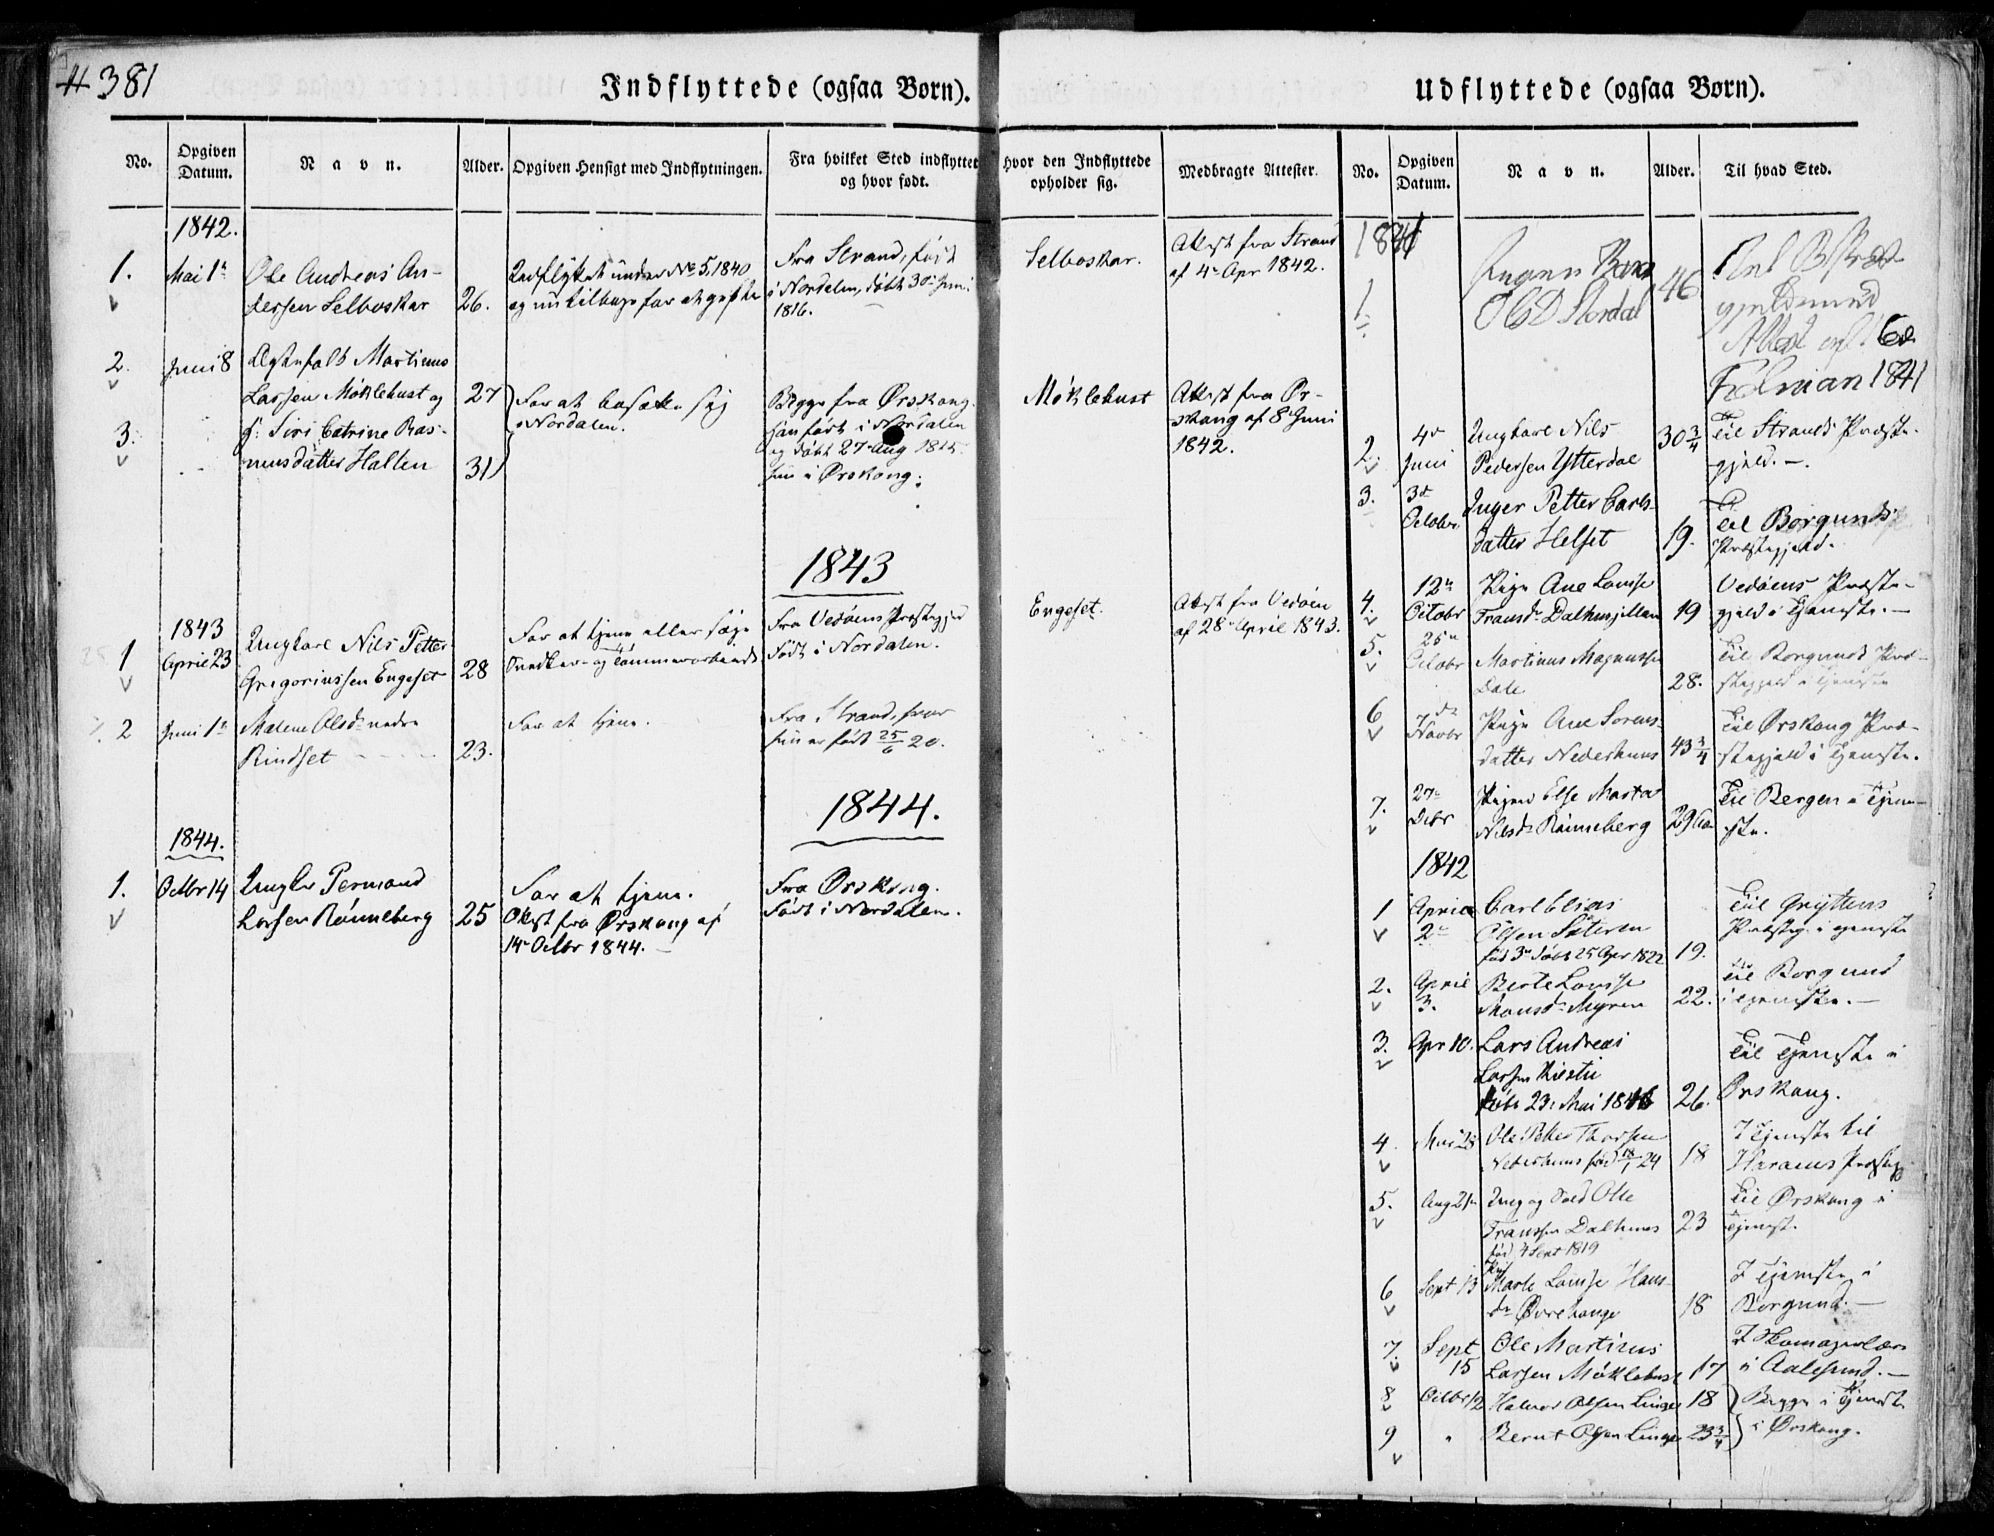 # 381
Indflyttede (ogsaa Børn).
No.
Opgiven Datum.
Navn.
Alder.
Opgiven Hensigt med Indflytningen.
Fra hvilket Sted indflyttet og hvor født.
Hvor den Indflyttede opholder sig.
Medbragte Attester.
1842.
1. Mai 1ste Ole Andreas An-
dersen Selboskar 26.
Udflyttet under No 5, 1840
og nu tilbage for at gifte
Fra Strand, født
i Nordalen, døbt 30 Juni
1816.
Selboskar.
Attest fra Strand
af 4de Apr 1842.
2. Juni 8 Ægtefolk Martinus
Larsen Møklebust og 27
3. Siri Catrine Ras-
musdatter Halten 31
For at bosætte sig
i Nordalen.
Begge fra Ørskoug.
Han født i Nordalen
og døbt 27 Aug 1815
hun i Ørskoug.
Møklebust
Attest fra Ør-
skoug af 8 Juni
1842.
1843
1843
1 April 23 Ungkarl Nils Petter
Gregoriussen Engeset 28
For at tjene eller søge
Snedker- og Tømmerarbeide
Fra Vedøens Præstegjed
Født i Nordalen.
Engeset.
Attest fra Vedøen
af 28 April 1843.
2 Juni 1ste Malene Olsdr nedre
Rindset 23.
For at tjene.
Fra Strand, hvor
hun er født 25/6 20.
1844.
1844.
1. Octbr 14 Ungkr Permand
Larsen Rønneberg 25
For at tjene.
Attest fra Ørskoug af
14de Octbr 1844.
Fra Ørskoug.
Født i Nordalen.
Udflyttede (ogsaa Børn).
No.
Opgiven Datum.
Navn.
Alder.
Til hvad Sted.
1841
1. Olsd Stordal 46
Attest
1841
2. 4de Juni Ungkarl Nils
Pedersen Ytterdal 30 3/4
Til Strands Præste-
gjeld.
3. 3de October Inger Petter Carls-
datter Helset 19.
Til Borgunds
Præstegjeld.
4. 12te Octobr Pige Ane Louise
Fransdr Dalhusjellan 19
Vedøens Præste-
gjeld i Tjeneste.
5. 25de Octobr Martinus Magnussen
Dale 28.
Til Borgunds Præ-
stegjeld i Tjeneste
6 7de Novbr Pige Ane Sørens-
datter Nederhuus 43 3/4
Til Ørskoug Præ-
stegjeld i Tjeneste.
7. 27de Debr Pigen Else Marta
Nilsdr Rønneberg 29
Til Bergen i Tjene-
ste.
1842
1 April 2de Carl Elias
Olsen Sæteren
fød 3de døbt 25 Apr 1822 19.
Til Gryttens
Præsteg. i Tjeneste
2. April 3. Berte Louise
Monsdr Myren 22.
Til Borgund
i Tjeneste.
3. Apr 10. Lars Andreas
Larsen
døbt 23. Mai 1816 26.
Til Tjeneste i
Ørskoug.
4 Mai 28 Ole Petter Thorsen
Nederhuus fød 18/1 24 18
I Tjeneste til
Harams Præsteg
5. Aug 21 Ung og Sold Ole
Franssen Dalhuus 23
fød 4 Sept 1819
Til Ørskoug i
Tjenest.
6 Sept 13 Pig Marte Louise Hans-
dr Øvrehauge 18
I Tjeneste i
Borgund.
7. Sept 15 Ole Martinus
Larsen Møklebust 17
I Skomagerlære
i Aalesund.
8 Octbr 12 Halvor Olsen Linge 18
9 " Bernt Olsen Linge 23 3/4
Begge i Tjeneste
i Ørskoug.